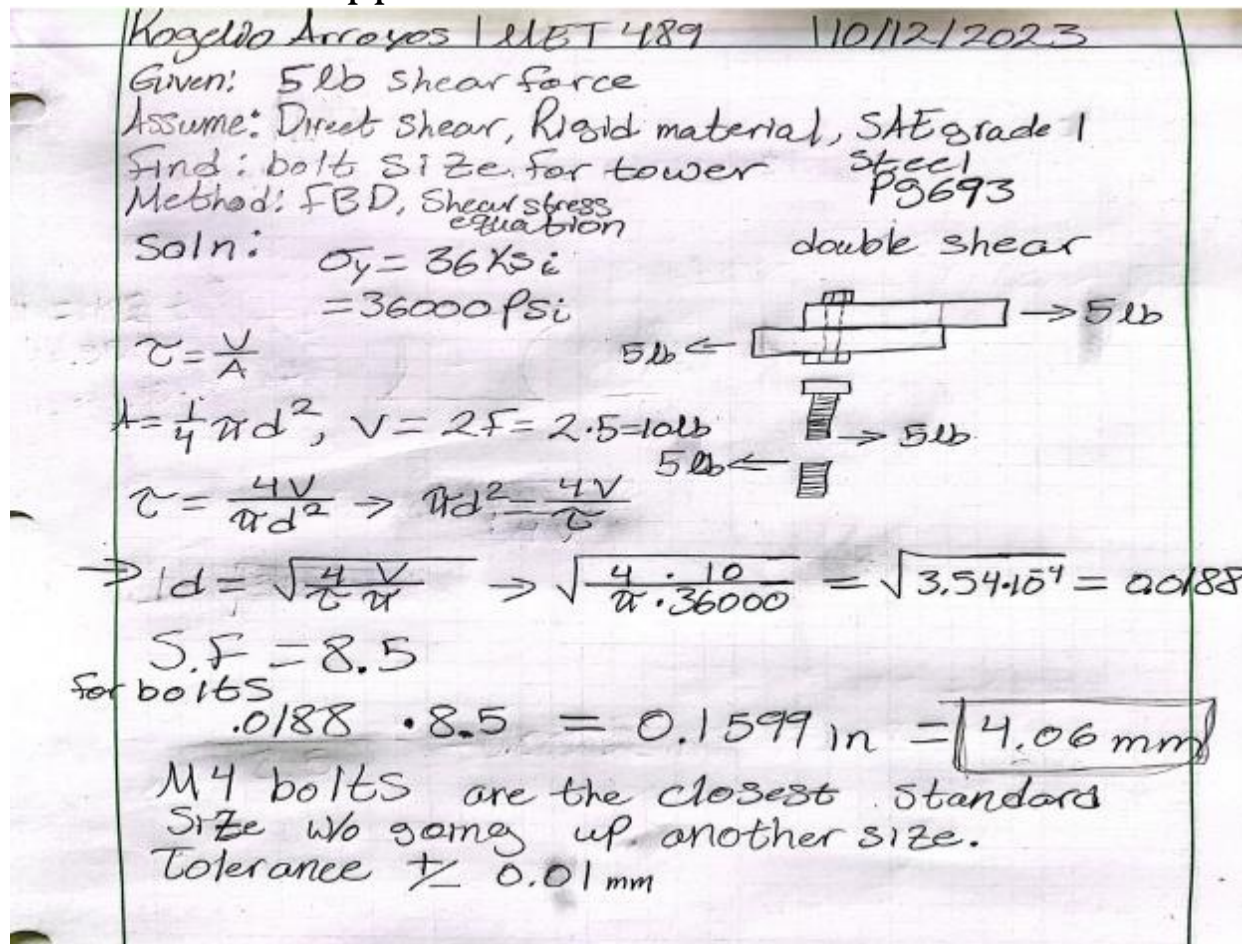 Rogelio Arroyos | MET 489 | 10/12/2023
Given: 5lb shear force
Assume: Direct Shear, Rigid material, SAE grade 1
Steel
Find: bolt size for tower
Pg693
Method: FBD, Shear stress
equation
double shear
Soln: σy = 36 Ksi
= 36000 Psi
→ 5lb
5lb ←
τ = V/A
A = 1/4 πd², V = 2F = 2·5 = 10lb
→ 5lb
5lb ←
τ = 4V/πd² → πd² = 4V/τ
→ d = √(4 V/τ π) → √(4 · 10/π · 36000) = √3.54·10⁻⁴ = 0.0188
S.F = 8.5
for bolts
.0188 · 8.5 = 0.1599 in = 4.06 mm
M4 bolts are the closest standard
Size w/o going up another size.
Tolerance +/- 0.01 mm